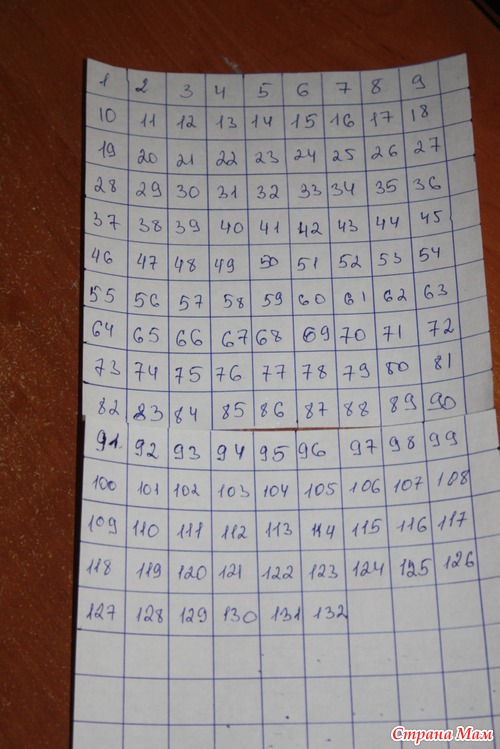 1 2 3 4 5 6 7 8 9
10 11 12 13 14 15 16 17 18
19 20 21 22 23 24 25 26 27
28 29 30 31 32 33 34 35 36
37 38 39 40 41 42 43 44 45
46 47 48 49 50 51 52 53 54
55 56 57 58 59 60 61 62 63
64 65 66 67 68 69 70 71 72
73 74 75 76 77 78 79 80 81
82 83 84 85 86 87 88 89 90
91 92 93 94 95 96 97 98 99
100 101 102 103 104 105 106 107 108
109 110 111 112 113 114 115 116 117
118 119 120 121 122 123 124 125 126
127 128 129 130 131 132
Страна Мам